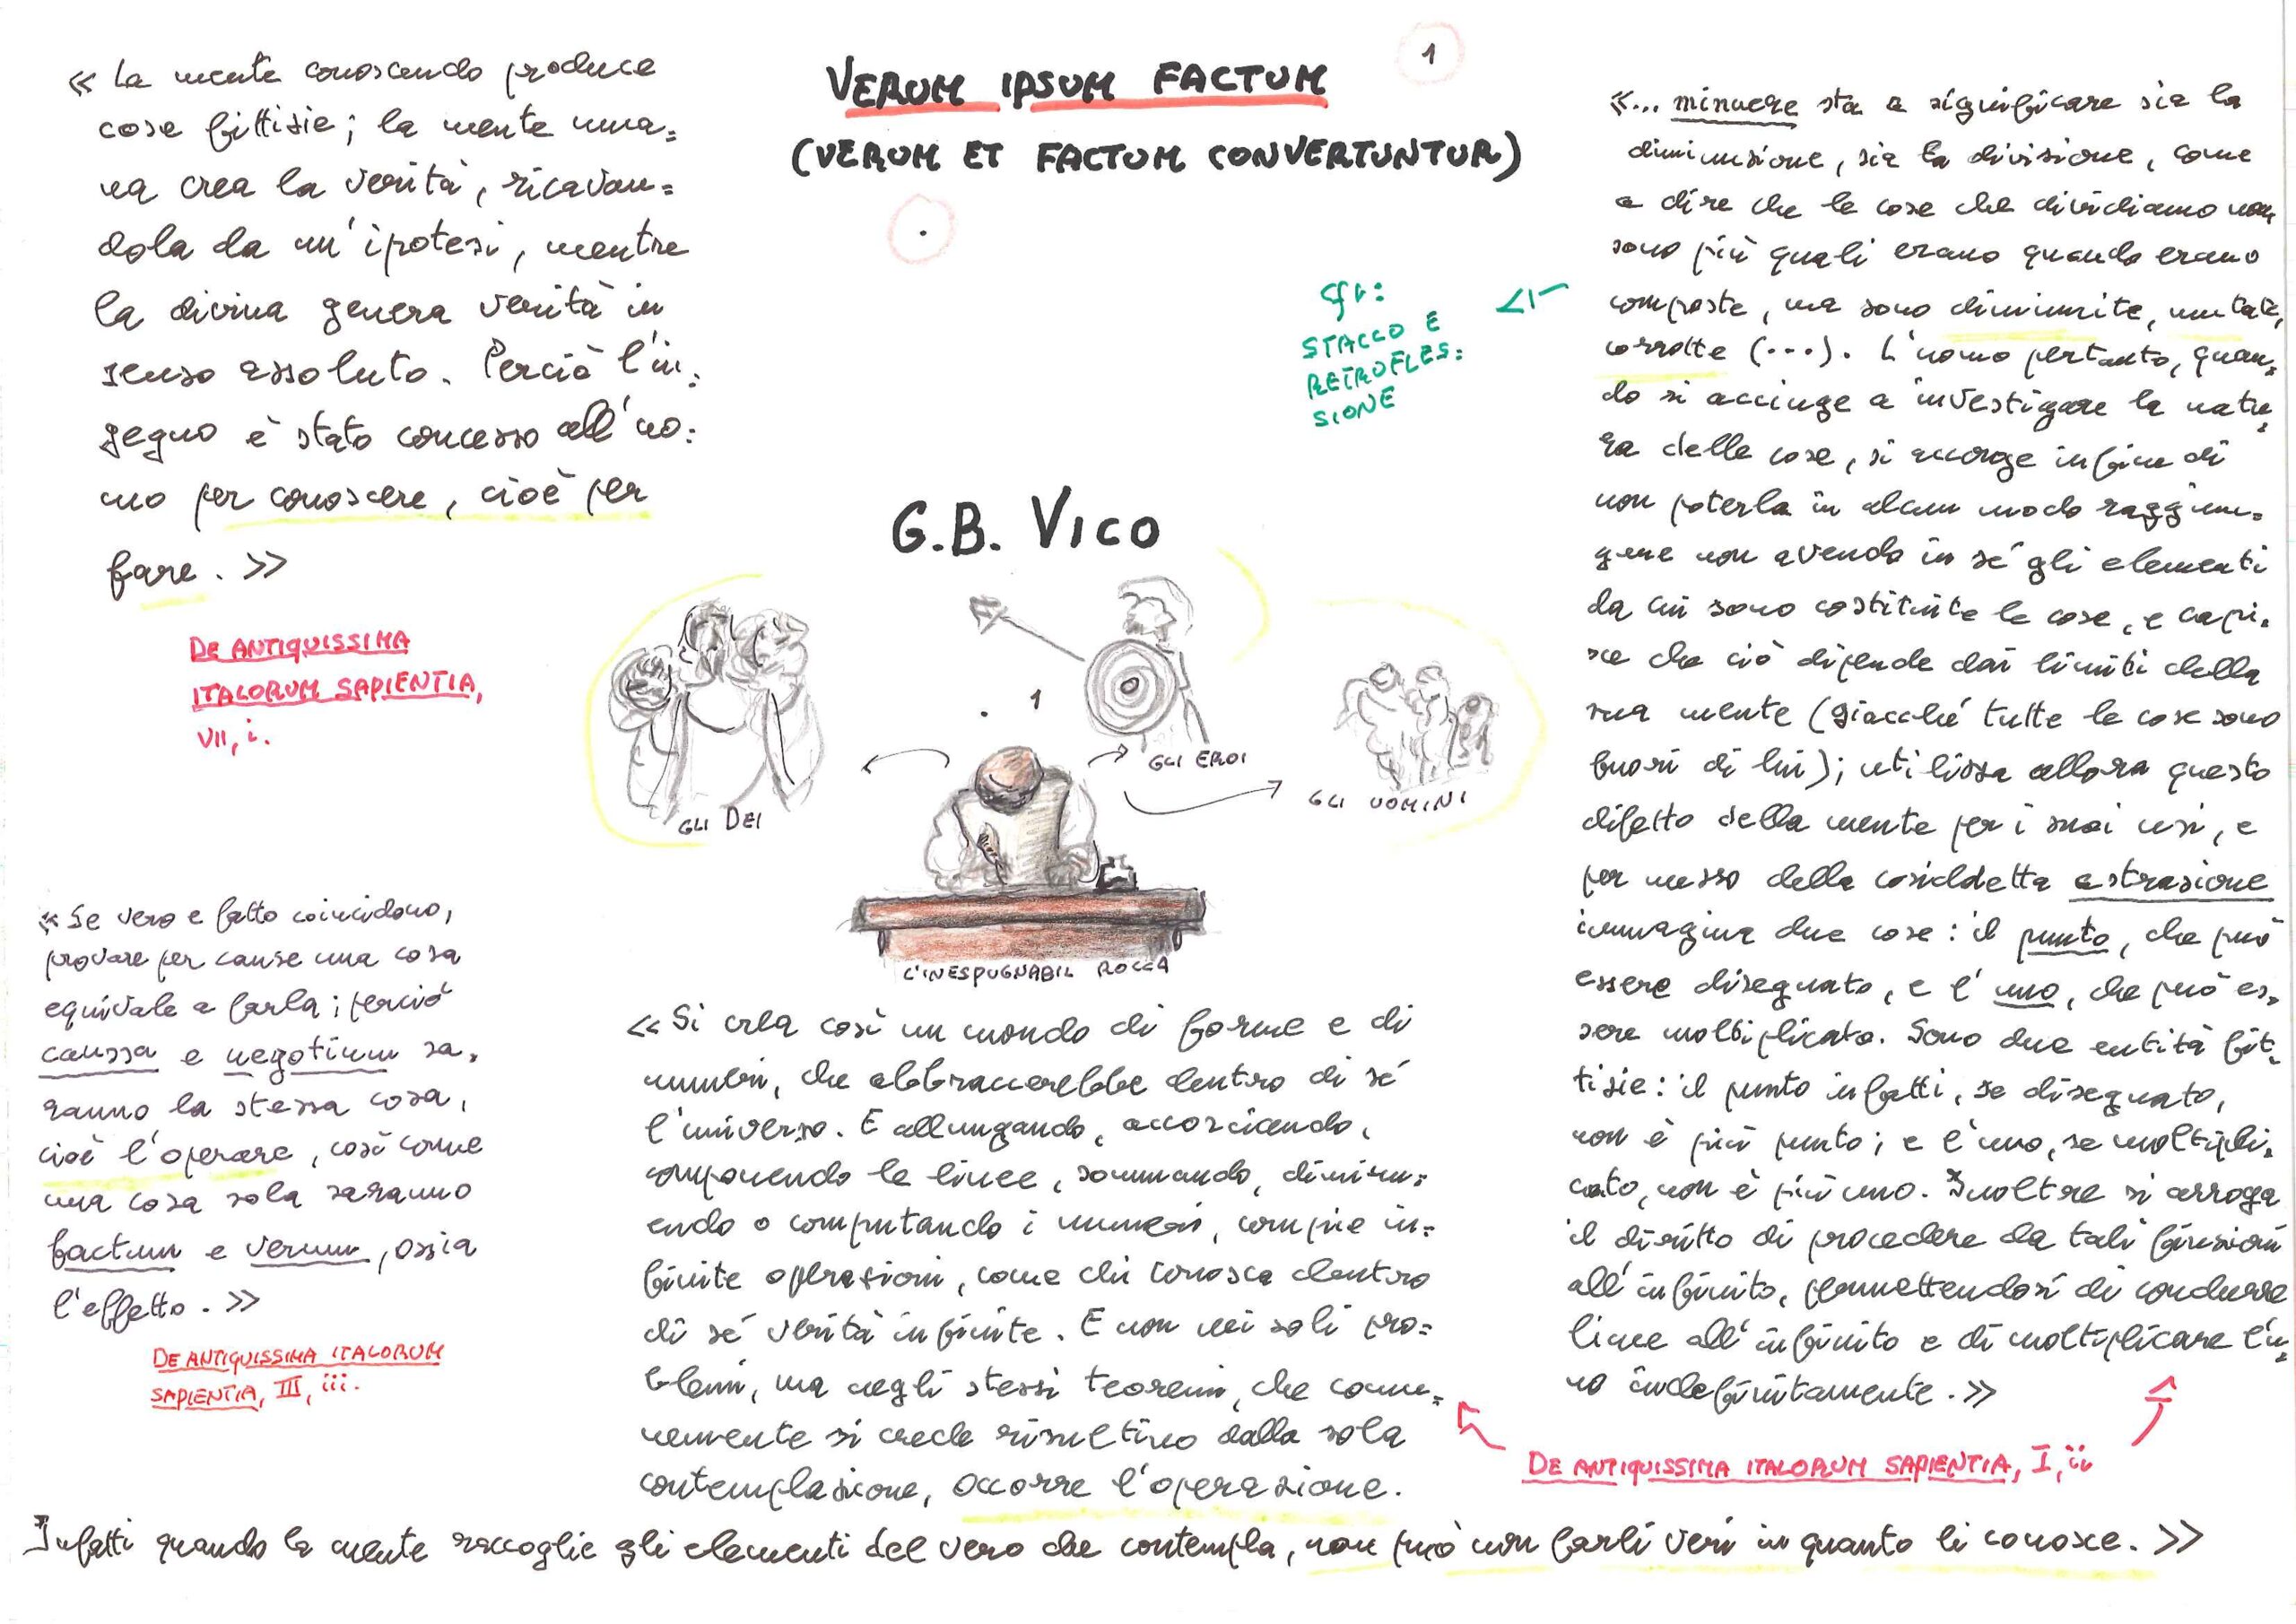 « La mente conoscendo produce
cose fittizie; la mente uma=
na crea la verità, ricavan=
dola da un' ipotesi, mentre
la divina genera verità in
senso assoluto. Perciò l'in=
gegno è stato concesso all'uo=
mo per conoscere, cioè per
fare. »
DE ANTIQUISSIMA
ITALORUM SAPIENTIA,
VII, i.
« Se vero e fatto coincidono,
provare per cause una cosa
equivale a farla; perciò
caussa e negotium sa=
ranno la stessa cosa,
cioè l'operare, così come
una cosa sola saranno
factum e verum, ossia
l'effetto. »
DE ANTIQUISSIMA ITALORUM
SAPIENTIA, III, iii.
1
VERUM IPSUM FACTUM
(VERUM ET FACTUM CONVERTUNTUR)
.
cfr:
STACCO E
RETROFLES=
SIONE
G.B. VICO
. 1
GLI DEI
GLI EROI
GLI UOMINI
L'INESPUGNABIL ROCCA
« Si crea così un mondo di forme e di
numeri, che abbraccerebbe dentro di sé
l'universo. E allungando, accorciando,
componendo le linee, sommando, diminu=
endo o computando i numeri, compie in=
finite operazioni, come chi conosca dentro
di sé verità infinite. E non nei soli pro=
blemi, ma negli stessi teoremi, che comu=
nemente si crede risultino dalla sola
contemplazione, occorre l'operazione.
Infatti quando la mente raccoglie gli elementi del vero che contempla, non può non farli veri in quanto li conosce. »
«... minuere sta a significare sia la
diminuzione, sia la divisione, come
a dire che le cose che dividiamo non
sono più quali erano quando erano
composte, ma sono diminuite, mutate,
corrotte (...). L'uomo pertanto, quan=
do si accinge a investigare la natu=
ra delle cose, si accorge infine di
non poterla in alcun modo raggiun=
gere non avendo in sé gli elementi
da cui sono costituite le cose, e capi=
sce che ciò dipende dai limiti della
sua mente (giacché tutte le cose sono
fuori di lui); utilizza allora questo
difetto della mente per i suoi usi, e
per mezzo della cosiddetta astrazione
immagina due cose: il punto, che può
essere disegnato, e l'uno, che può es=
sere moltiplicato. Sono due entità fit=
tizie: il punto infatti, se disegnato,
non è più punto; e l'uno, se moltipli=
cato, non è più uno. Inoltre si arroga
il diritto di procedere da tali finzioni
all'infinito, permettendosi di condurre
linee all'infinito e di moltiplicare l'u=
no indefinitamente. »
DE ANTIQUISSIMA ITALORUM SAPIENTIA, I, ii